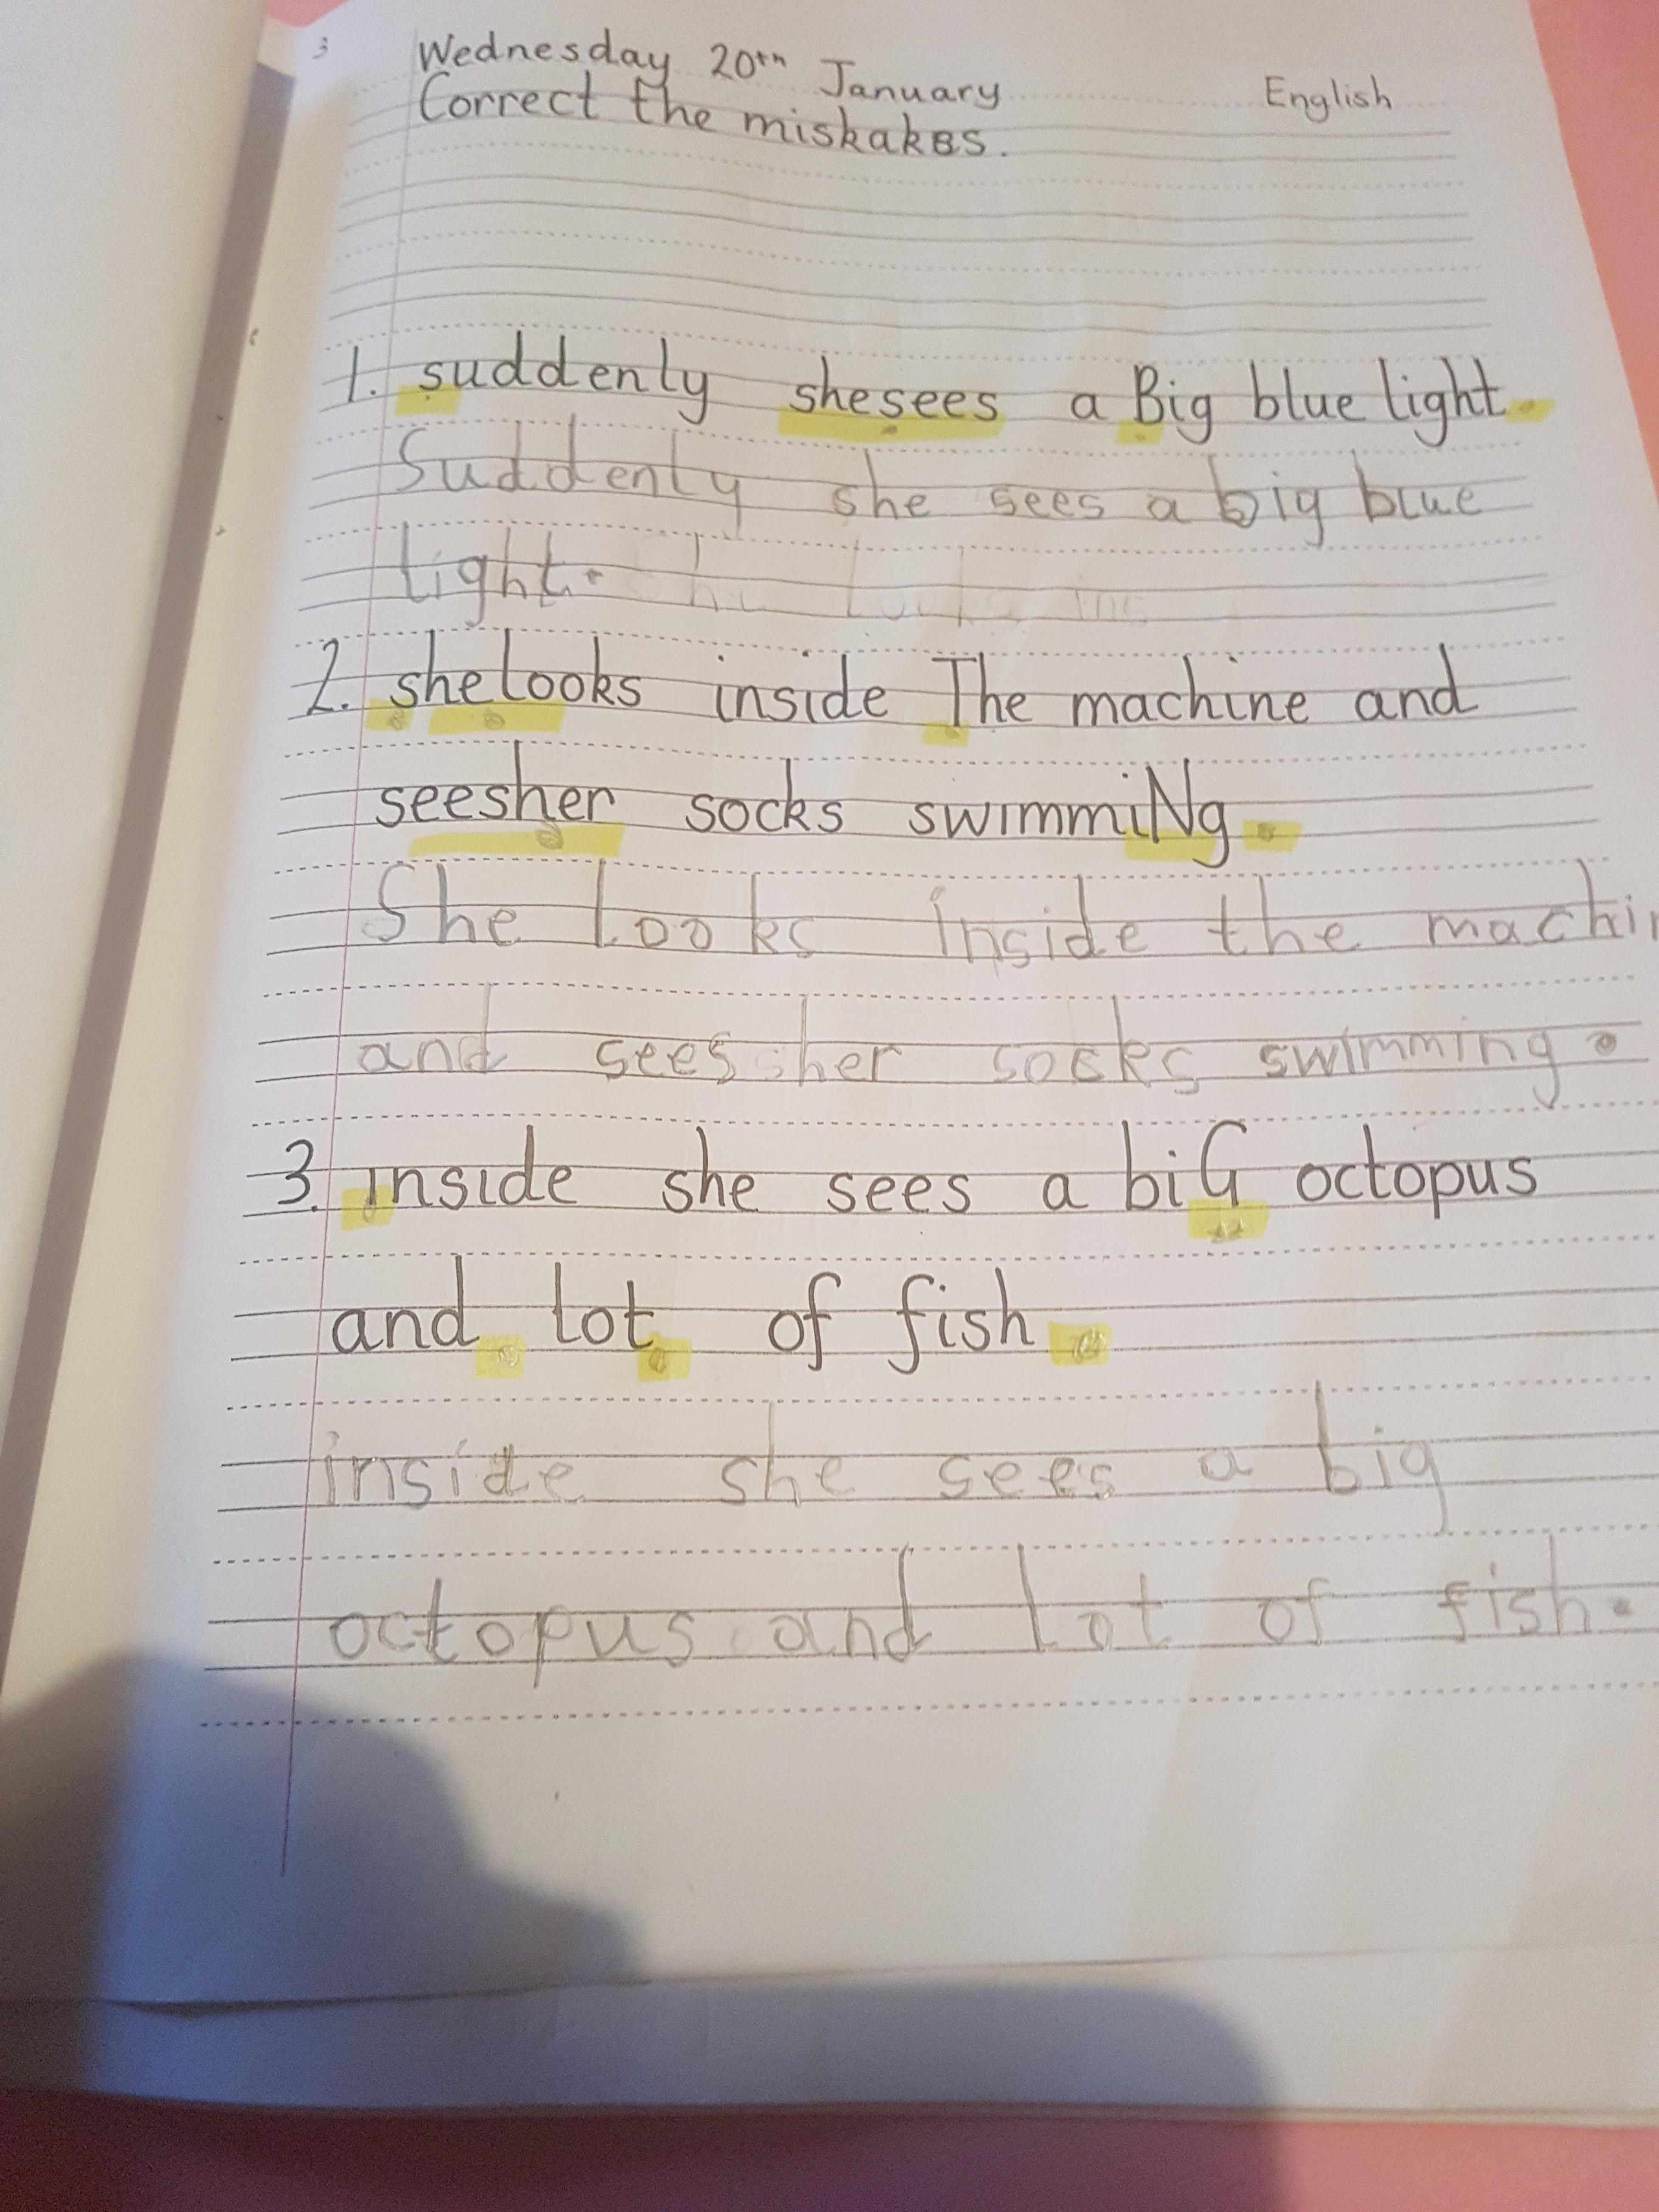 3
Wednesday 20th January English
Correct the miskakes.
1. suddenly shesees a Big blue light.
Suddenly she sees a big blue
light.
2. shelooks inside The machine and
seesher socks swimmiNg.
She looks inside the machin
and sees her socks swimming.
3. inside she sees a biG octopus
and. lot. of fish.
inside she sees a big
octopus and lot of fish.